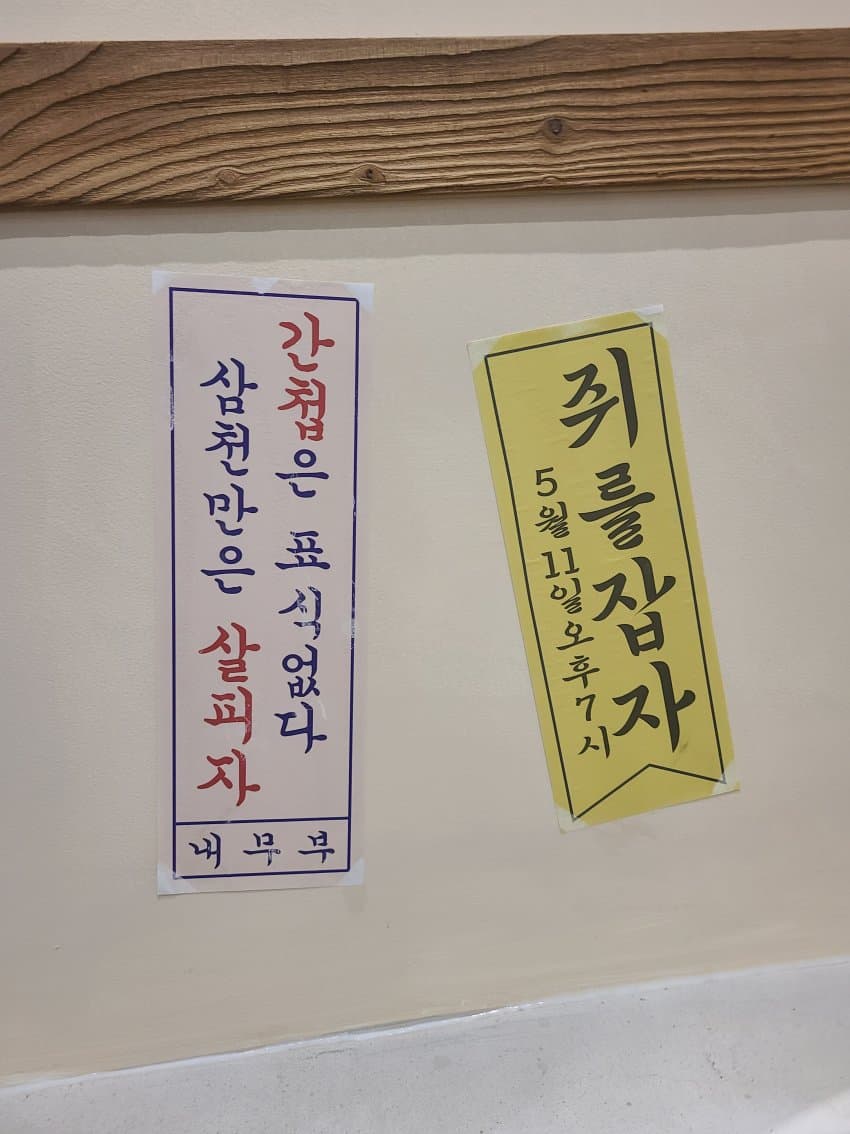 간첩은 표식없다
삼천만은 살피자
내무부
쥐를잡자
5월11일오후7시